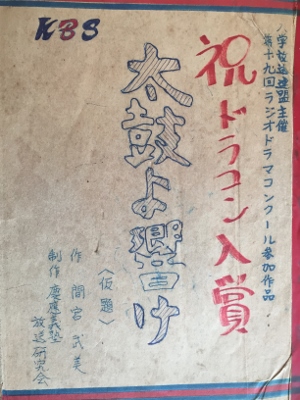 KBS
学放送連盟主催
第十九回ラジオドラマコンクール参加作品
祝ドラコン入賞
太鼓よ響け
〈仮題〉
作 間宮武美
制作 慶應義塾
放送研究会